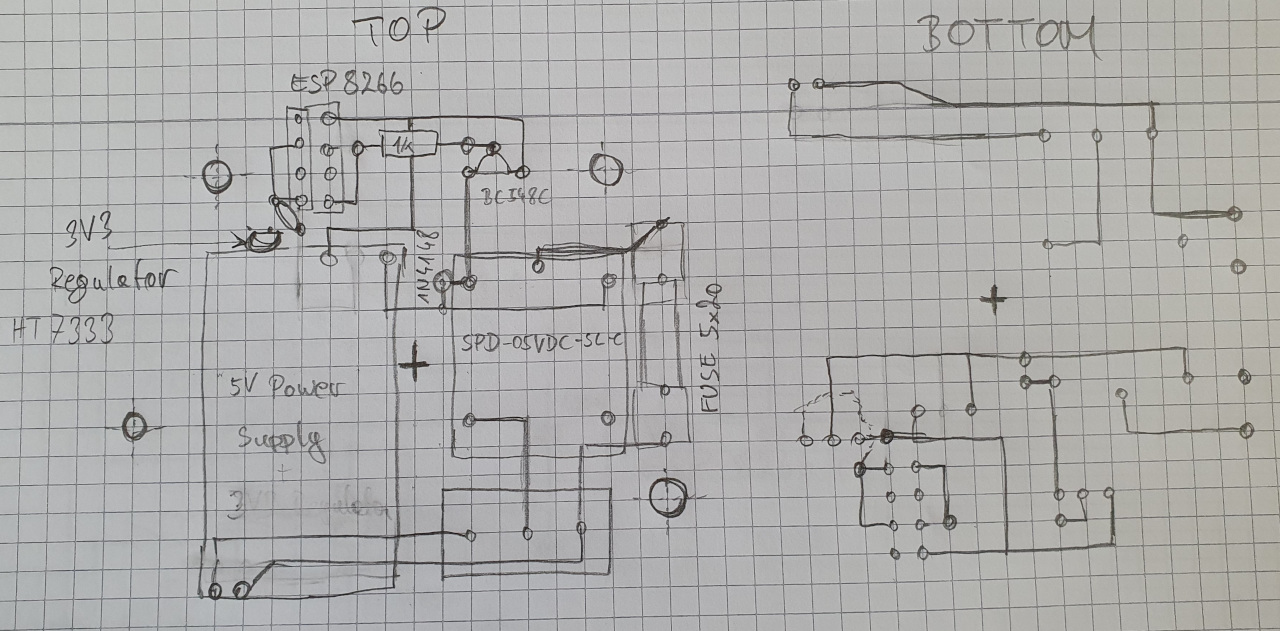 TOP
BOTTOM
ESP8266
1k
BC548C
3V3
Regulator
HT7333
1N4148
SPD-05VDC-SL-C
FUSE 5x20
5V Power
Supply
+
3